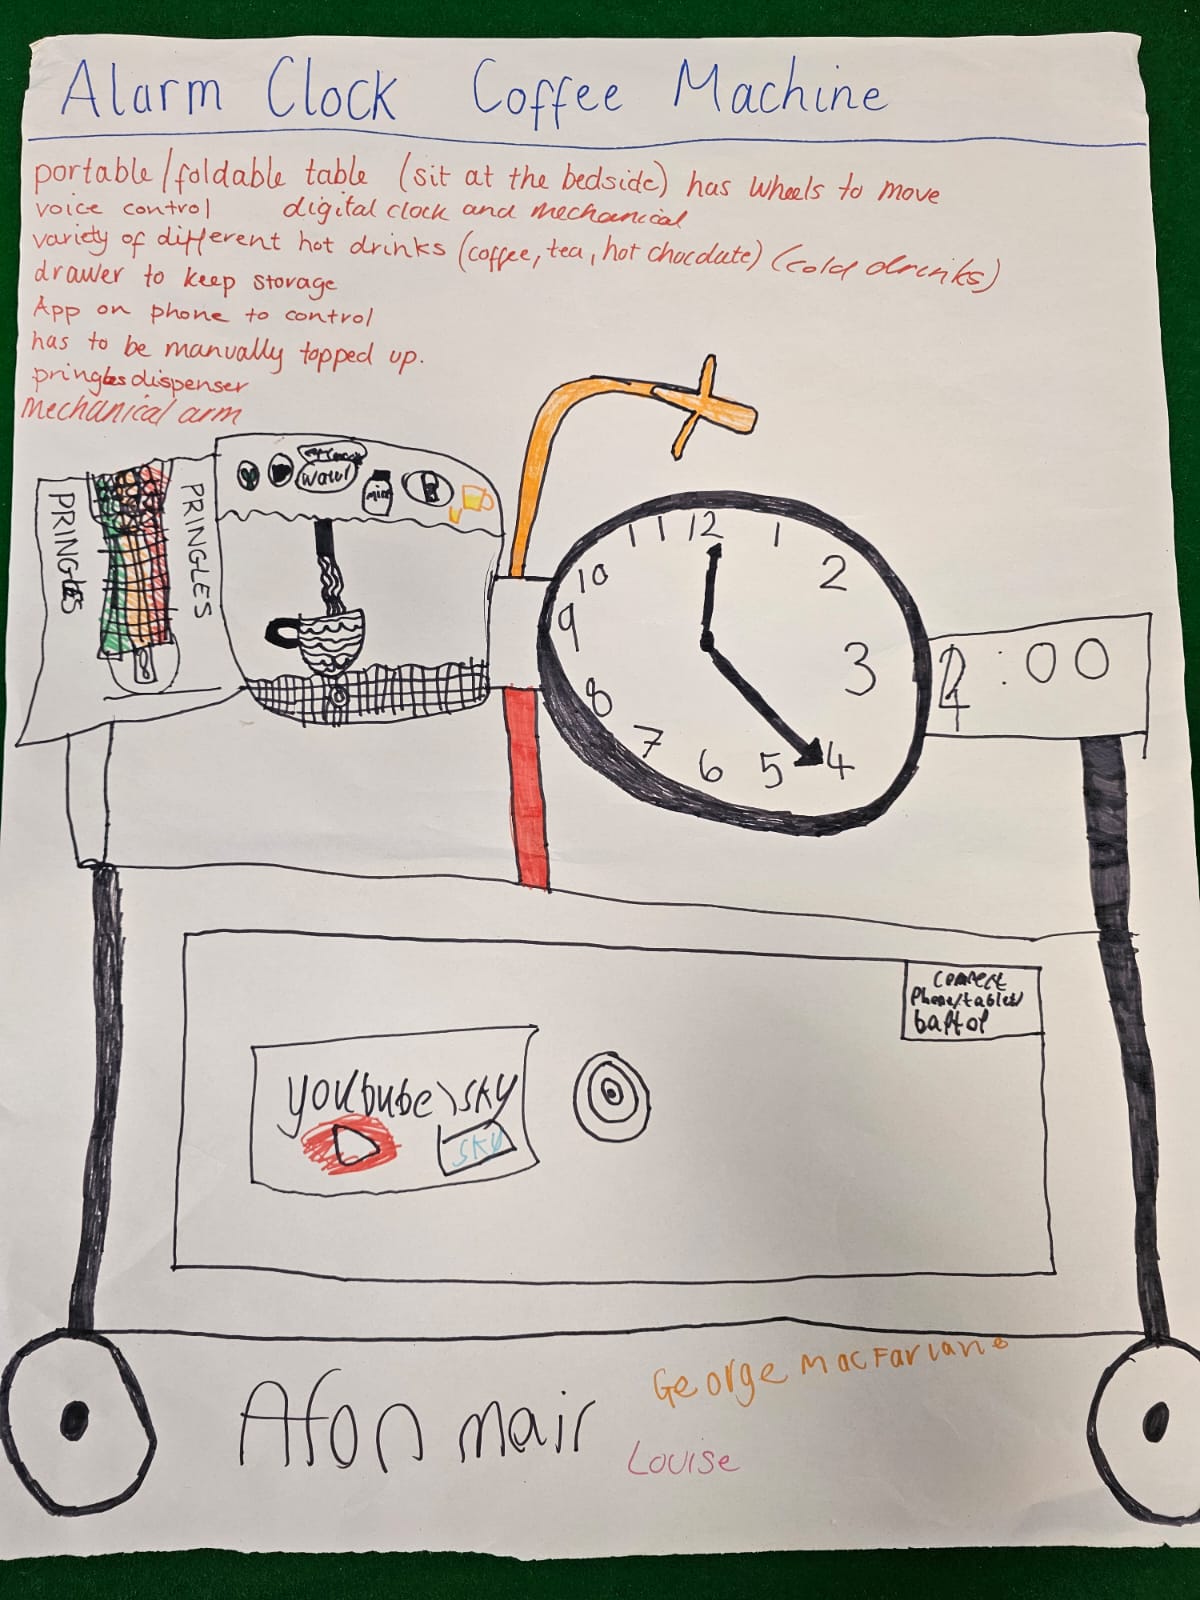 Alarm Clock Coffee Machine
portable/foldable table (sit at the bedside) has wheels to move
voice control digital clock and mechanical
variety of different hot drinks (coffee, tea, hot chocolate) (cold drinks)
drawer to keep storage
App on phone to control
has to be manually topped up.
pringles dispenser
mechanical arm
PRINGLES
PRINGLES
water
milk
12
1
2
3
4
5
6
7
8
9
10
11
:00
connect
Phone/tablet/
youtube\sky
sky
George Macfarlane
Afon mair
Louise